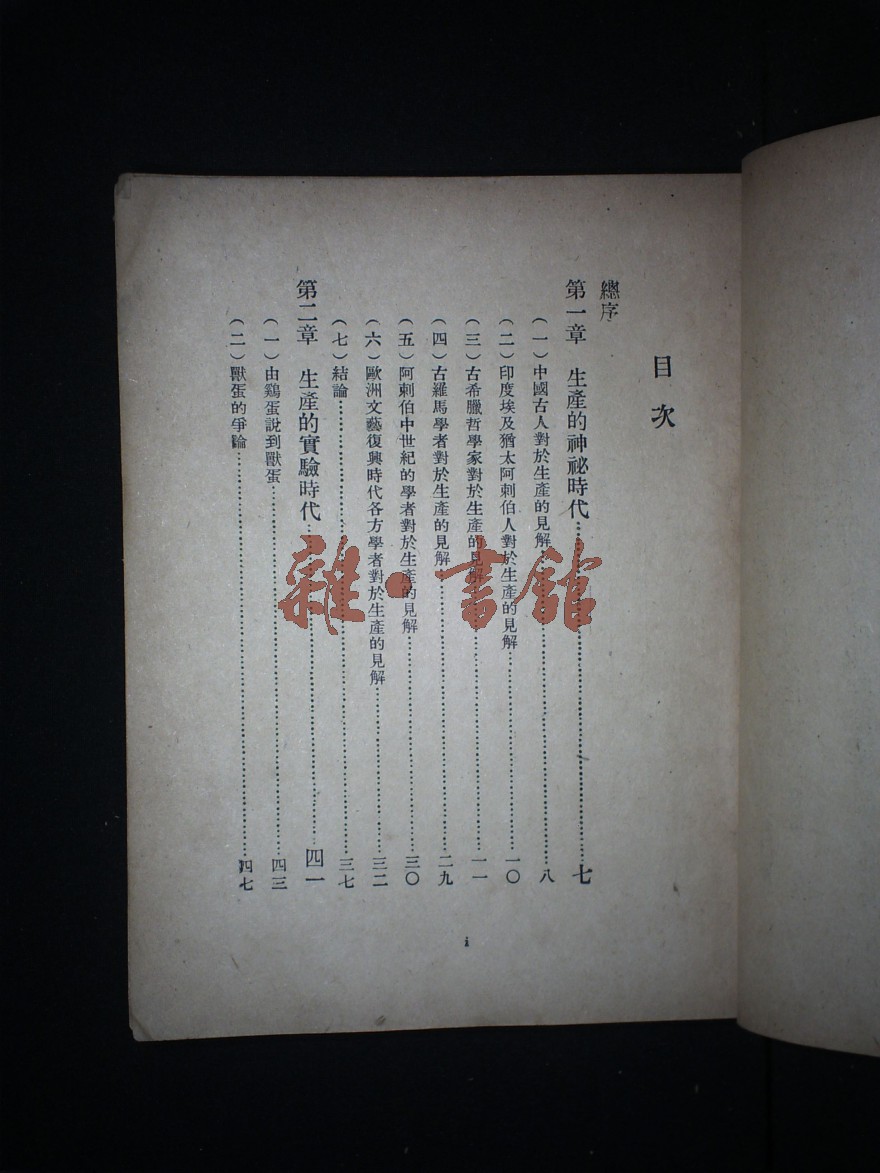 目次
總序
第一章 生產的神祕時代……七
(一)中國古人對於生產的見解……八
(二)印度埃及猶太阿剌伯人對於生產的見解……一〇
(三)古希臘哲學家對於生產的見解……一一
(四)古羅馬學者對於生產的見解……二九
(五)阿剌伯中世紀的學者對於生產的見解……三〇
(六)歐洲文藝復興時代各方學者對於生產的見解……三二
(七)結論……三七
第二章 生產的實驗時代……四一
(一)由鷄蛋說到獸蛋……四三
(二)獸蛋的爭論……四七
i
雜·書館